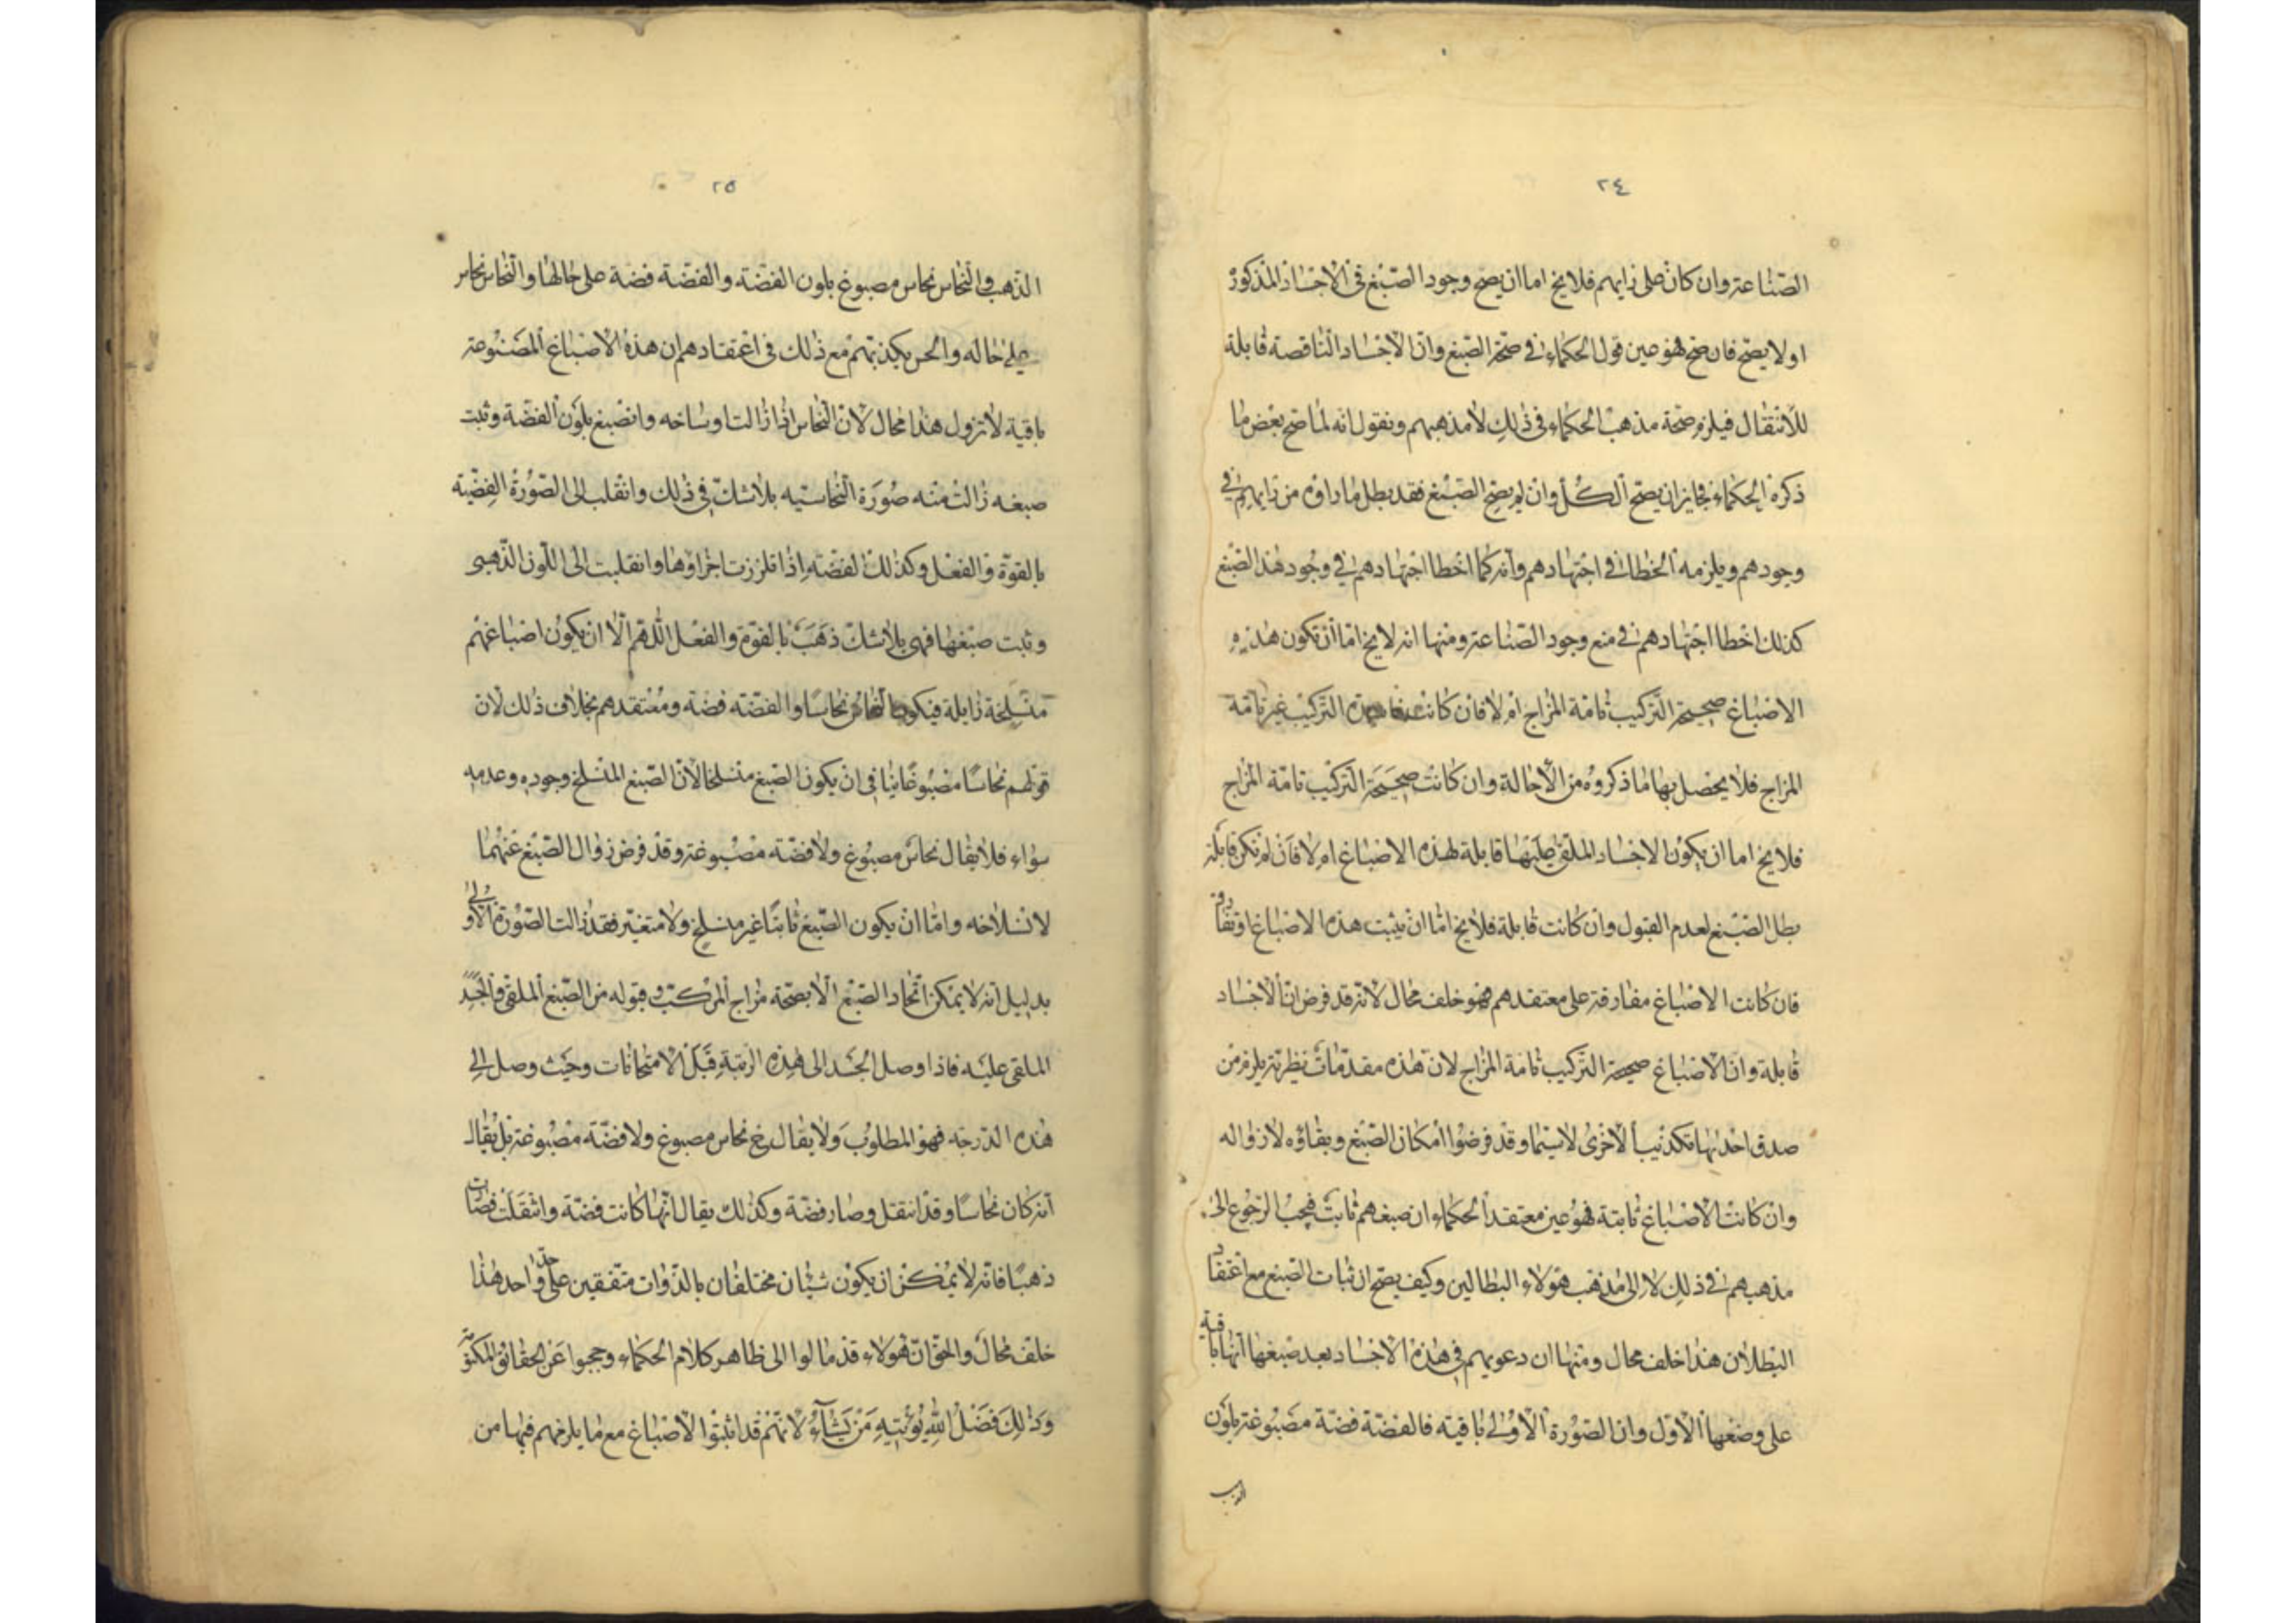 ٢٤
الصناعة وان كان على رايهم فلا يخ اما ان يصح وجود الصبغ فى الاجساد المذكورة
او لا يصح فان صح فهو عين قول الحكماء فى صحة الصبغ وان الاجساد الناقصة قابلة
للانتقال فيلزم صحة مذهب الحكماء فى ذلك لا مذهبهم ونقول انه لما صح بعض ما
ذكره الحكماء فجايز ان يصح الكل وان لم يصح الصبغ فقد بطل ما راوه من رايهم فى
وجودهم ويلزمه الخطا فى اجتهادهم وانه كما اخطا اجتهادهم فى وجود هذا الصبغ
كذلك اخطا اجتهادهم فى منع وجود الصناعة ومنها انه لا يخ اما ان تكون هذه
الاصباغ صحيحة التركيب تامة المزاج ام لا فان كانت التركيب غير تامة
المزاج فلا يحصل بها ما ذكروه من الاحالة وان كانت صحيحة التركيب تامة المزاج
فلا يخ اما ان يكون الاجساد الملقى عليها قابلة لهذه الاصباغ ام لا فان لم تكن قابلة
بطل الصبغ لعدم القبول وان كانت قابلة فلا يخ اما ان يثبت هذه الاصباغ او تفارق
فان كانت الاصباغ مفارقة على معتقدهم فهو خلف محال لانه قد فرض ان الاجساد
قابلة وان الاصباغ صحيحة التركيب تامة المزاج لان هذه مقدمات نظرية يلزم من
صدق احديها تكذيب الاخرى لا سيما وقد فرضوا امكان الصبغ وبقاؤه لا زواله
وان كانت الاصباغ ثابتة فهو عين معتقد الحكماء ان صبغهم ثابت فيجب الرجوع الى
مذهبهم فى ذلك لا الى مذهب هؤلاء البطالين وكيف يصح ان ثبات الصبغ مع اعتقاد
البطلان هذا خلف محال ومنها ان دعويهم فى هذه الاجساد بعد صبغها انها باقية
على وضعها الاول وان الصورة الاولى باقية فالفضة فضة مصبوغة بلون
الذهب
٢٥
الذهب والنحاس نحاس مصبوغ بلون الفضة والفضة فضة على حالها والنحاس نحاس
على حاله والحس يكذبهم مع ذلك فى اعتقادهم ان هذه الاصباغ المصنوعة
باقية لا تزول هذا محال لان النحاس اذا زالت اوساخه وانصبغ بلون الفضة وثبت
صبغه زالت منه صورة النحاسيه بلا شك فى ذلك وانقلب الى الصورة الفضية
بالقوة والفعل وكذلك الفضة اذا تلززت اجزاوها وانقلبت الى اللون الذهبى
وثبت صبغها فهى بلا شك ذهب بالقوة والفعل اللهم الا ان يكون اصباغهم
منسلخة زايلة فيكون النحاس نحاسا والفضة فضة ومعتقدهم بخلاف ذلك لان
قولهم نحاسا مصبوغا ينافى ان يكون الصبغ منسلخا لان الصبغ المنسلخ وجوده وعدمه
سواء فلا يقال نحاس مصبوغ ولا فضة مصبوغة وقد فرض زوال الصبغ عنهما
لانسلاخه واما ان يكون الصبغ ثابتا غير منسلخ ولا متغير فقد زالت الصورة الاولى
بدليل انه لا يمكن اتحاد الصبغ الا بصحة مزاج المركب وقبوله من الصبغ الملقى فالجسد
الملقى عليه فاذا وصل الجسد الى هذه الرتبة قبل الامتحانات وحيث وصل الى
هذه الدرجه فهو المطلوب ولا يقال نحاس مصبوغ ولا فضة مصبوغة بل يقال
انه كان نحاسا وقد انتقل وصار فضة وكذلك يقال انها كانت فضة وانتقلت فصارت
ذهبا فانه لا يمكن ان يكون شيئان مختلفان بالذوات متفقين على حد واحد هذا
خلف محال والحق ان هؤلاء قد مالوا الى ظاهر كلام الحكماء وحجبوا عن الحقائق المكنونة
وذلك فضل الله يؤتيه من يشاء لانهم قد اثبتوا الاصباغ مع ما يلزمهم فيها من